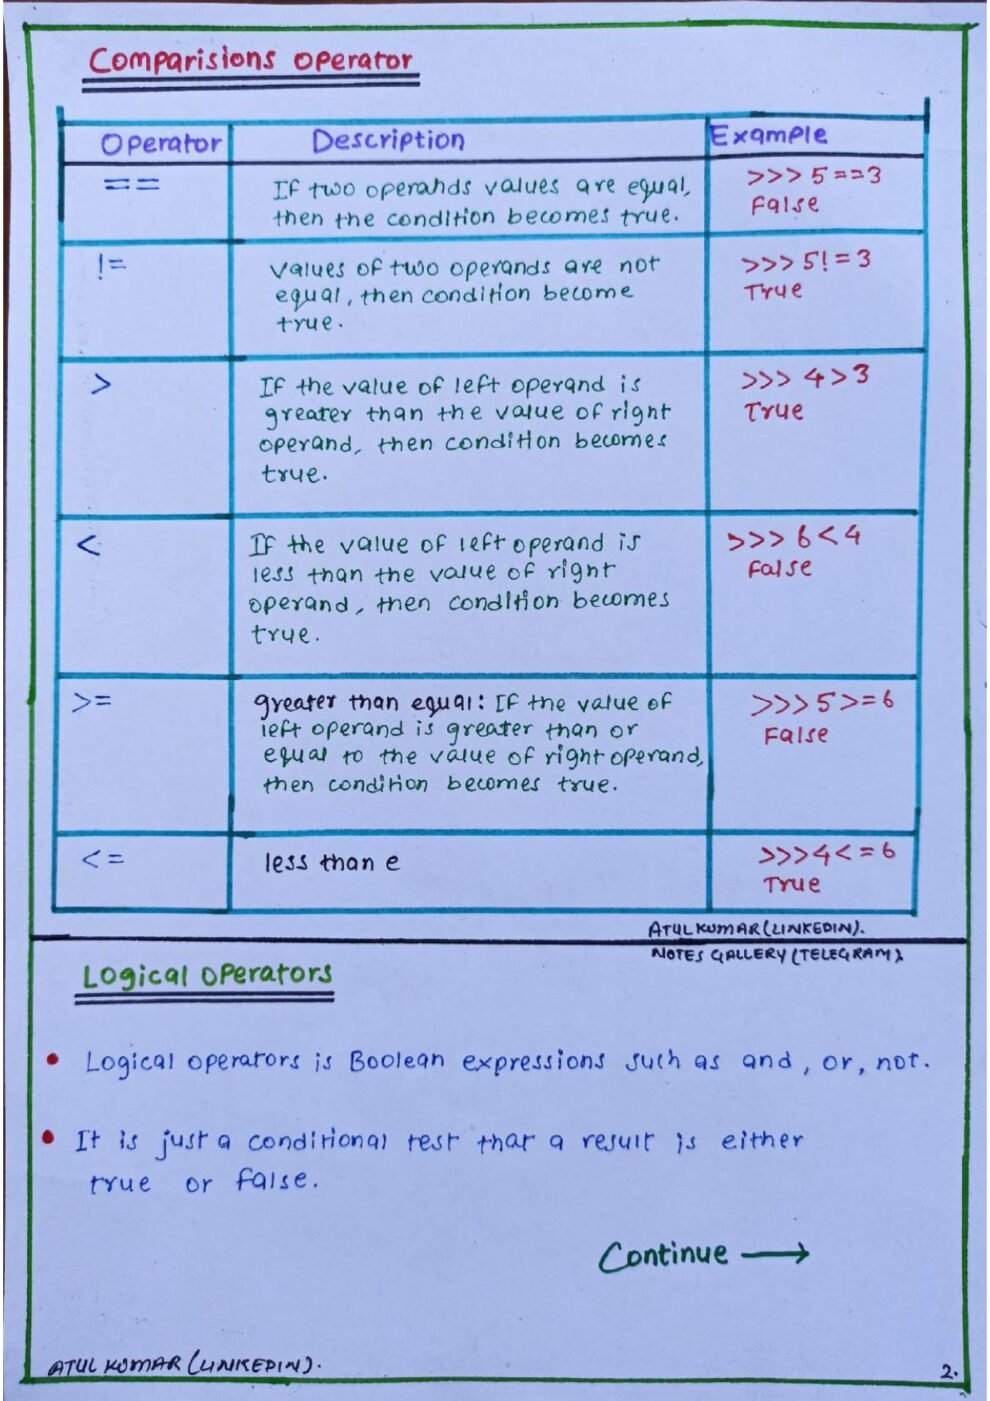 Comparisions operator
Operator Description Example
== If two operands values are equal, >>> 5==3
then the condition becomes true. False
!= values of two operands are not >>> 5!=3
equal, then condition become True
true.
> If the value of left operand is >>> 4>3
greater than the value of right True
operand, then condition becomes
true.
< If the value of left operand is >>> 6<4
less than the value of right False
operand, then condition becomes
true.
>= greater than equal: If the value of >>> 5>=6
left operand is greater than or False
equal to the value of right operand,
then condition becomes true.
<= less than e >>>4<=6
True
ATUL KUMAR (LINKEDIN).
NOTES GALLERY (TELEGRAM).
Logical operators
• Logical operators is Boolean expressions such as and, or, not.
• It is just a conditional test that a result is either
true or false.
Continue →
ATUL KUMAR (LINKEDIN).
2.